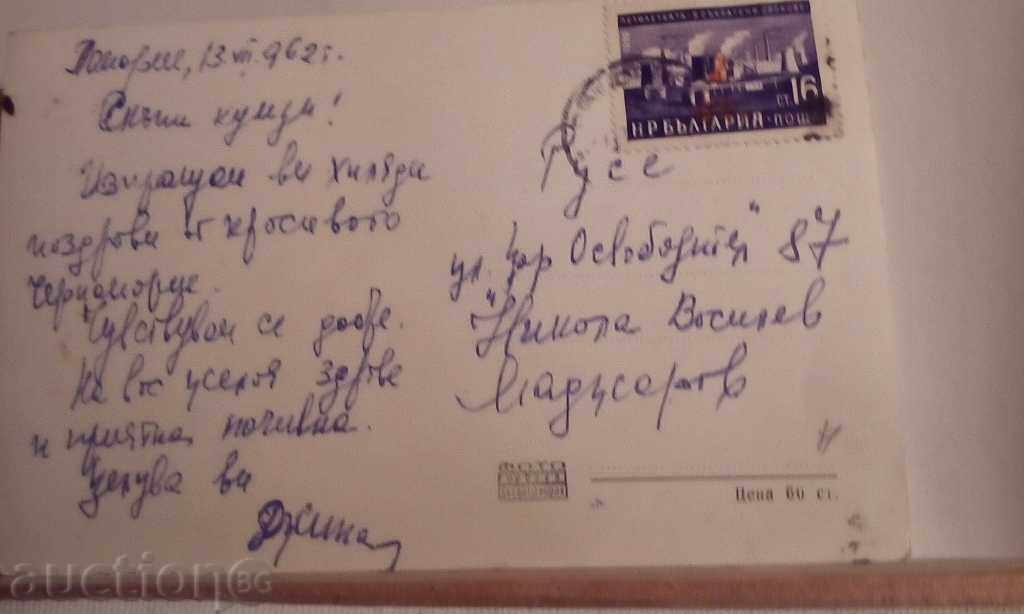 Поморие, 13.VII.962 г.
Скъпи кумци!
Изпращам ви хиляди
поздрави от красивото
черноморие.
Чувствувам се добре.
На вас желая здраве
и приятна почивка.
Целува ви
Джина
НРБЪЛГАРИЯ·ПОЩ
СТ. 16
Русе
ул. "Цар Освободител" 87
Никола Василев
ФОТО
Цена 60 ст.
auctionBG